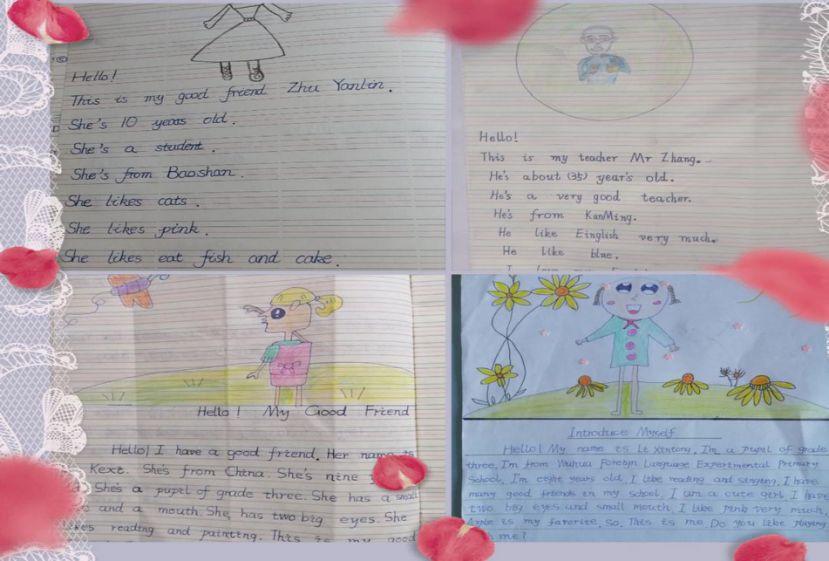 Hello!
This is my good friend Zhu Yanlin.
She's 10 years old.
She's a student.
She's from Baoshan.
She likes cats.
She likes pink.
She likes eat fish and cake.
Hello!
This is my teacher Mr Zhang.
He's about (35) year's old.
He's a very good teacher.
He's from KunMing.
He like Einglish very much.
He like blue.
Hello! My Good Friend
Hello! I have a good friend. Her name is
Kexi. She's from China. She's nine
She's a pupil of grade three. She has a small
and a mouth. She has two big eyes. She
reading and painting. This is my good
Introduce Myself
Hello! My name is Li Xintong. I'm a pupil of grade
three. I'm from Wuhua Foreign Language Experimental Primary
School. I'm eight years old. I like reading and singing. I have
many good friends in my school. I am a cute girl. I have
two big eyes and small mouth. I like pink very much.
Apple is my favorite. So, This is me. Do you like playing
me?